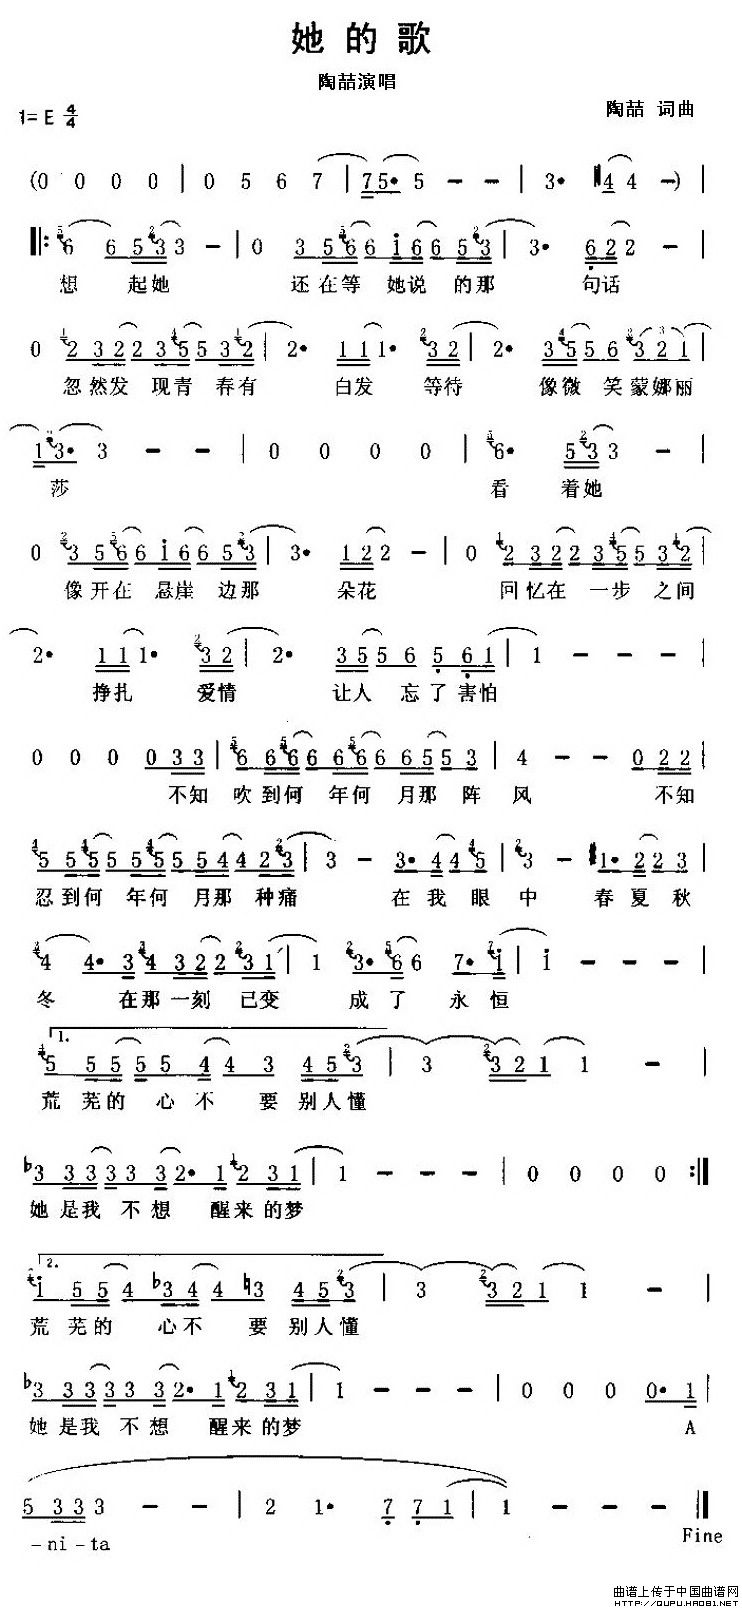 她的歌
陶喆演唱
1=E 4/4
陶喆 词曲
(0 0 0 0 | 0 5 6 7 | 7 5• 5 - - | 3• 4 4 -) |
6 6 5 3 3 - | 0 3 5 6 6 i 6 6 5 3 | 3• 6 2 2 - |
想 起她 还在等 她说 的那 句话
0 2 3 2 2 3 5 5 3 2 | 2• 1 1 1• 3 2 | 2• 3 5 5 6 3 2 1 |
忽然发 现青 春有 白发 等待 像微 笑蒙娜丽
1 3• 3 - - | 0 0 0 0 | 6• 5 3 3 - |
莎 看 着她
0 3 5 6 6 i 6 6 5 3 | 3• 1 2 2 - | 0 2 3 2 2 3 5 5 3 2 |
像开在 悬崖 边那 朵花 回忆在 一步 之间
2• 1 1 1• 3 2 | 2• 3 5 5 6 5 6 1 | 1 - - - |
挣扎 爱情 让人 忘了害怕
0 0 0 0 3 3 | 6 6 6 6 6 6 6 6 5 5 3 | 4 - - 0 2 2 |
不知 吹到何 年何 月那 阵 风 不知
5 5 5 5 5 5 5 5 4 4 2 3 | 3 - 3• 4 4 5 | 3 - 1• 2 2 3 |
忍到何 年何 月那 种痛 在我 眼中 春夏秋
4 4• 3 4 3 2 2 3 1 | 1 3• 6 6 7• i | i - - - |
冬 在那一刻 已变 成了 永恒
1.
5 5 5 5 5 4 4 3 4 5 3 | 3 3 2 1 1 - |
荒 芜的 心不 要 别人懂
b3 3 3 3 3 3 2• 1 2 3 1 | 1 - - - | 0 0 0 0 :||
她是我 不想 醒来的梦
2.
i 5 5 4 b3 4 4 ♮3 4 5 3 | 3 3 2 1 1 - |
荒 芜的 心不 要别人懂
b3 3 3 3 3 3 2• 1 2 3 1 | 1 - - - | 0 0 0 0• 1 |
她是我 不想 醒来的梦 A
5 3 3 3 - - | 2 1• 7 7 1 | 1 - - - ||
-ni-ta Fine
曲谱上传于中国曲谱网
HTTP://QUPU.HAO81.NET